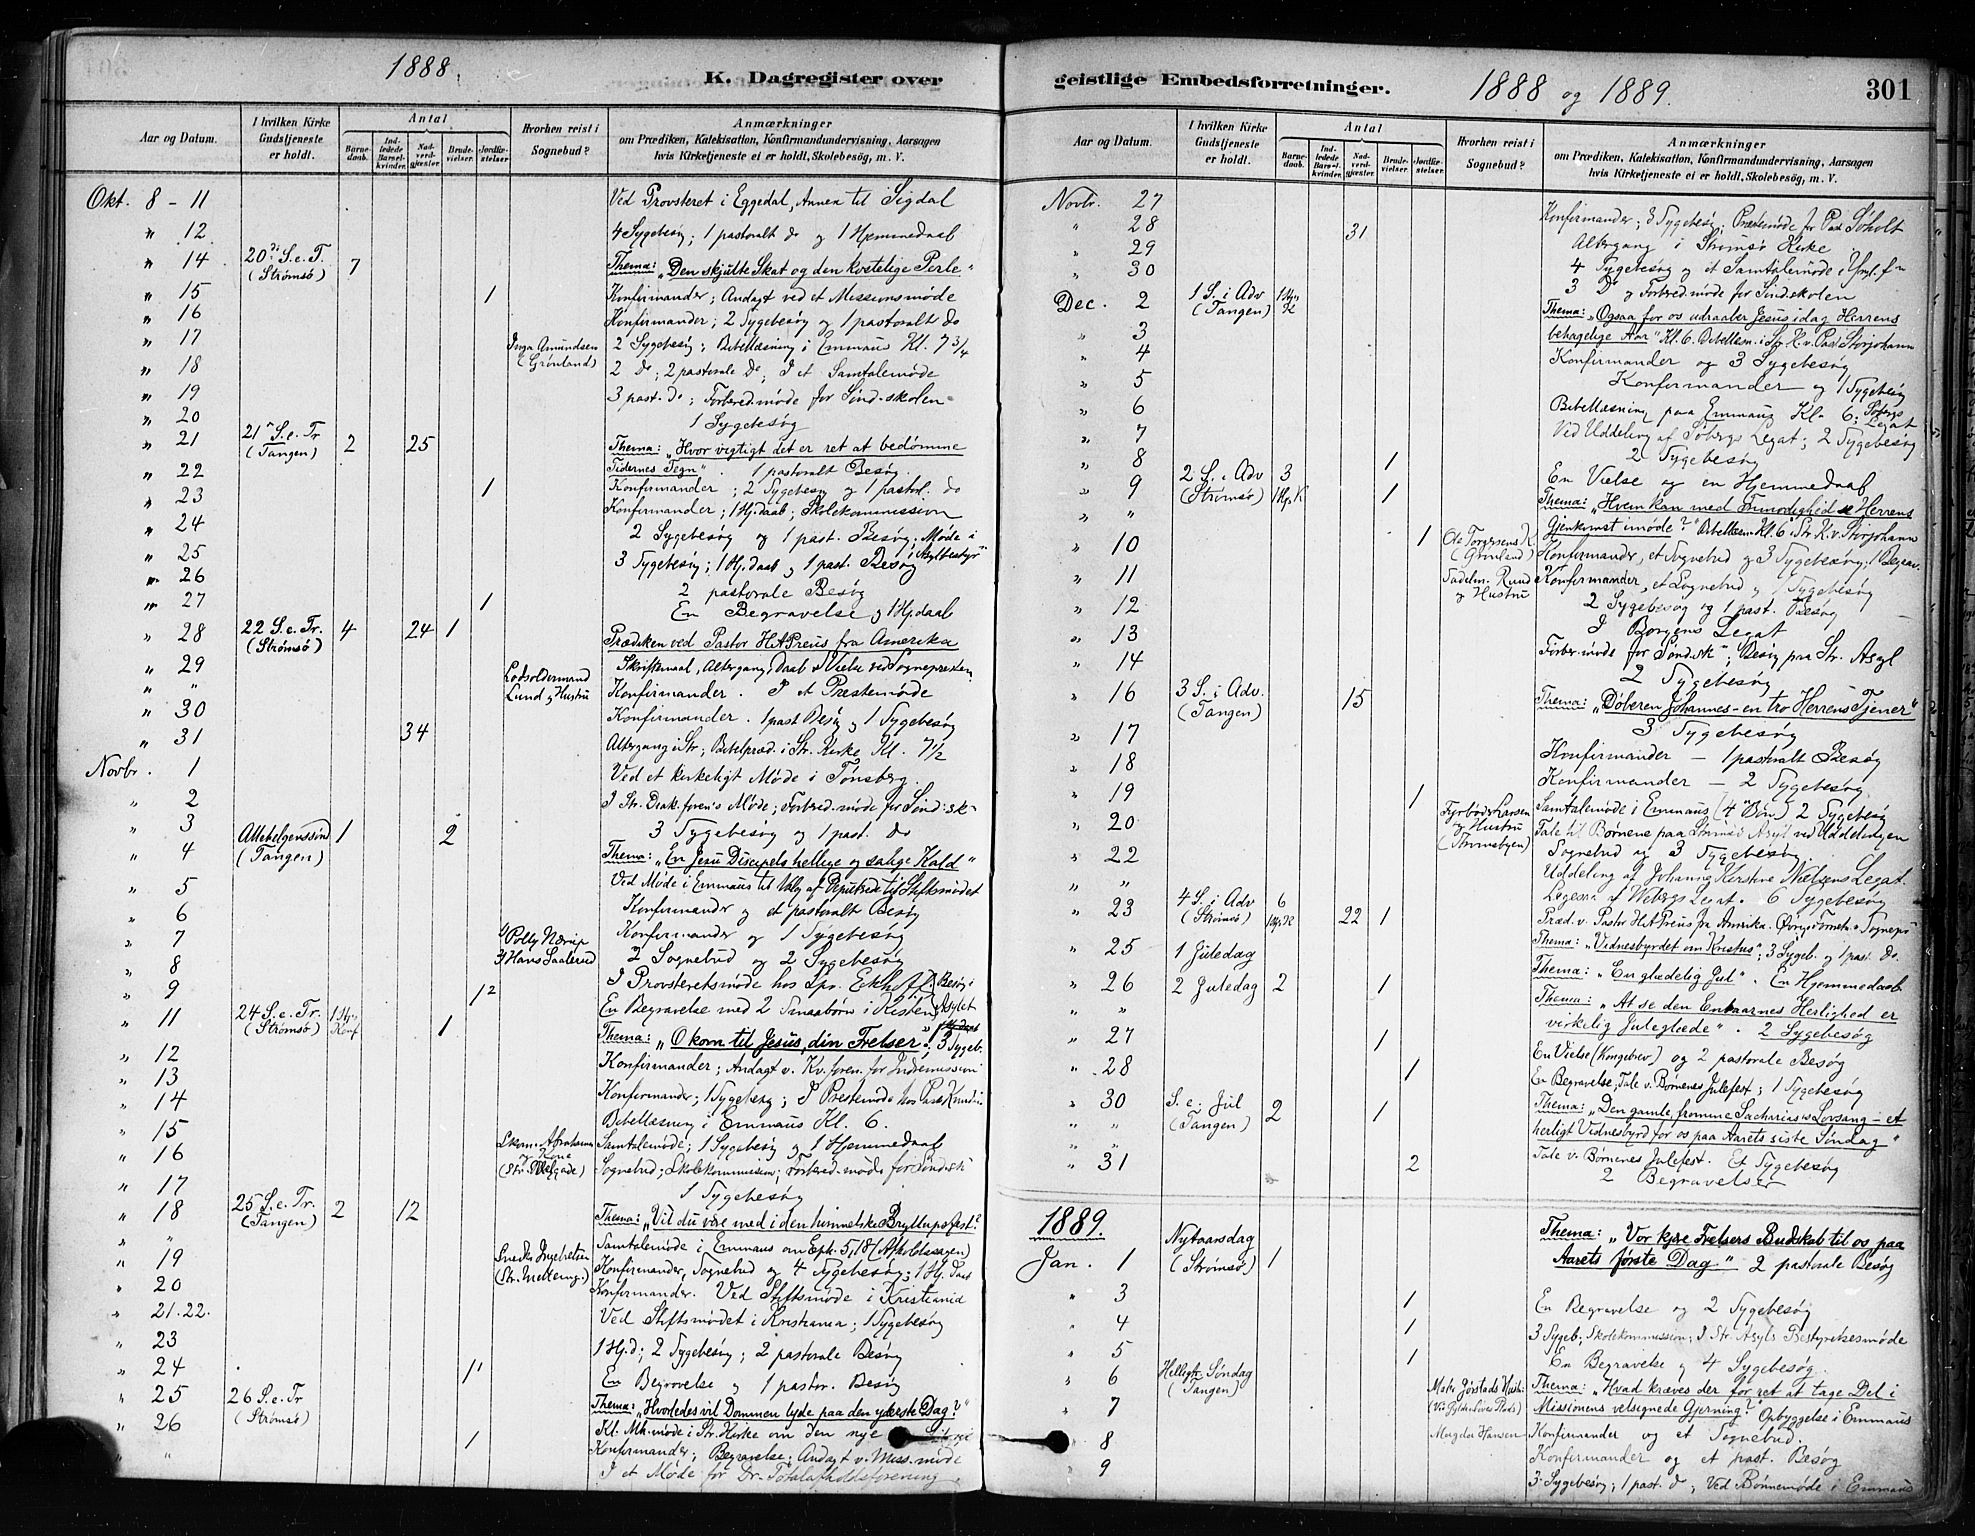 1888.
K. Dagregister over
I hvilken Kirke
Gudstjeneste
er holdt.
Aar og Datum.
Antal
Barne-
daab.
Ind-
ledede
Barsel-
kvinder.
Nad-
verd-
gjæster
Brude-
vielser.
Jordfæ-
stelser
Hvorhen reist i
Sognebud?
Anmærkninger
om Prædiken, Katekisation, Konfirmandundervisning, Aarsagen
hvis Kirketjeneste ei er holdt, Skolebesøg, m. V.
Okt. 8 - 11 Ved Provsteret i Eggedal, Annex til Sigdal
" 12 4 Sygebesøg; 1 pastoralt do og 1 Hjemmedaab
" 14 20de S. e. T. 7 Thema: "Den skjulte Skat og den kostelige Perle"
(Strømsø)
" 15 1 Konfirmander; Andagt ved et Missionsmøde
" 16 Konfirmander; 2 Sygebesøg og 1 pastoralt do
" 17 Inga Amundsen 2 Sygebesøg; Bibellæsning i Emmaus Kl. 7 3/4
(Grønland)
" 18 2 do; 2 pastorale do; I et Samtalemøde
" 19 3 past. do; Forbered.møde for Sønd.skolen
" 20 1 Sygebesøg
" 21 21 S. e. Tr 2 25 Thema: "Hvor vigtigt det er ret at bedømme
(Tangen) Tidernes Tegn". 1 pastoralt Besøg.
" 22 1 Konfirmander; 2 Sygebesøg og 1 pastoral. do
" 23 Konfirmander; 1 Hj.daab; Skolekommission
" 24 2 Sygebesøg og 1 past. Besøg; Møde i
" 25 3 Sygebesøg; 1 Hj.daab og 1 past. Besøg Asylbestyr
" 26 2 pastorale Besøg
" 27 1 En Begravelse og 1 Hj.daab
" 28 22 S. e. Tr. 4 24 1 Prædiken ved Pastor H A Preus fra Amerika
(Strømsø) Skriftemaal, Altergang, Daab & Vielse ved Sognepresten
" 29 Lodsoldermand Konfirmander. I et Prestemøde
Lund og Hustru
" 30 Konfirmander. 1 past Besøg og 1 Sygebesøg
" 31 34 Altergang i Str; Bibelpræd. i Str. Kirke Kl. 7 1/2
Novbr. 1 Ved et kirkeligt Møde i Tønsberg.
" 2 I Str. Diak.foren's Møde; Forbered.møde for Sønd.sk
" 3 3 Sygebesøg og 1 past. do
" 4 Allehelgenssønd 1 2 Thema: "En Jesu Discipels hellige og salige Kald"
(Tangen) Ved Møde i Emmaus til Valg af Deputered til Stiftsmødet
" 5 Konfirmander og et pastoralt Besøg
" 6 Konfirmander og 1 Sygebesøg
" 7 Polly Nærup 2 Sognebud og 2 Sygebesøg
" 8 Hans Saalerud I Provsteretsmøde hos Spr. Eckhoff. Besøg i
" 9 12 En Begravelse med 2 Smaabørn i Kisten Asylet
" 11 24 S. e. Tr. 1 Hj. 1 Thema: "O kom til Jesus, din Frelser"; 3 Sygeb.
(Strømsø) Konf
" 12 Konfirmander; Andagt v. Kv.foren. for Indremission
" 13 Konfirmander; 1 Sygebesøg; I Prestemøde hos Past Knud
" 14 Bibellæsning i Emmaus Kl. 6.
" 15 Samtalemøde; 1 Sygebesøg og 1 Hjemmedaab
" 16 Sognebud; Skolekommission; Forbered.møde for Sønd.sk
" 17 1 Sygebesøg
" 18 25 S. e. Tr. 2 12 Thema: "Vil du være med i den himmelske Bryllupsfest?
(Tangen) Samtalemøde i Emmaus om Eph. 5,18 (Afholdssagen)
" 19 Konfirmander, Sognebud og 4 Sygebesøg; 1 Hj. Daab
" 20 Konfirmander. Ved Stiftsmøde i Kristiania
" 21. 22. Ved Stiftsmødet i Kristiania; 1 Sygebesøg
" 23 1 Hj.d; 2 Sygebesøg; 2 pastorale Besøg
" 24 1 En Begravelse og 1 pastor. Besøg
" 25 26 S. e. Tr Thema: "Hvorledes vil Dommen lyde paa den yderste Dag?"
(Strømsø) Kl. Mk. møde i Str. Kirke om den nye
" 26 1 Konfirmander; Begravelse; Andagt v. Miss.møde
" I et Møde for Dr. Totalafholdsforening.
geistlige Embedsforretninger.
1888 og 1889.
301
Aar og Datum.
I hvilken Kirke
Gudstjeneste
er holdt.
Antal
Barne-
daab.
Ind-
ledede
Barsel-
kvinder.
Nad-
verd-
gjæster
Brude-
vielser.
Jordfæ-
stelser.
Hvorhen reist i
Sognebud?
Anmærkninger
om Prædiken, Katekisation, Konfirmandundervisning, Aarsagen
hvis Kirketjeneste ei er holdt, Skolebesøg, m. V.
Novbr. 27 Konfirmander; 3 Sygebesøg; Prestemøde for Past Søholt
" 28 31 Altergang i Strømsø Kirke
" 29 4 Sygebesøg og et Samtalemøde i
" 30 3 do og Forbred.møde for Sønd.skolen
Dec. 2 1 S. i Adv 1 Hj. Thema: "Ogsaa for os udraaber Jesus idag Herrens
(Tangen) K behagelige Aar" Kl. 6. Bibellæsn. i Str. K. v. Past Storjohann
" 3 Konfirmander og 3 Sygebesøg
" 4 Konfirmander og 1 Sygebesøg
" 5 Bibellæsning paa Emmaus Kl. 6;
" 6 Ved Uddeling af Søbergs Legat; 2 Sygebesøg
" 7 2 Sygebesøg
" 8 1 En Vielse og en Hjemmedaab
" 9 2 S. i Adv 3 1 Thema: "Hvem kan med Frimodighed se Herrens
" (Strømsø) 1 Hj. K Gjenkomst imøde?" Bibellæsn Kl. 6 i Str. K. v. Storjohann
" 10 1 Ole Torgersens K. Konfirmander, et Sognebud og 3 Sygebesøg; 1 Begrav.
(Grønland)
" 11 Sadelm. Rund Konfirmander, et Sognebud og 1 Sygebesøg
og Hustru
" 12 2 Sygebesøg og 1 past. Besøg
" 13 I Borgens Legat
" 14 Forber.møde for Sønd.sk; Besøg paa Str. Asyl
2 Sygebesøg
" 16 3 S. i Adv. 15 Thema: "Døberen Johannes - en tro Herrens Tjener"
(Tangen) 3 Sygebesøg
" 17 Konfirmander — 1 pastoralt Besøg
" 18 Konfirmander — 2 Sygebesøg
" 19 1 Samtalemøde i Emmaus (4 Bøn) 2 Sygebesøg
" 20 Fyrbøder Larsen Tale til Børnene paa Strømsø Asyl ved Uddelingen
og Hustru Sognebud og 3 Sygebesøg
" 22 Uddeling af Johanne Kerstine Nielsens Legat.
" " Legesaa af Webergs Legat. 6 Sygebesøg
" 23 4 S. i Adv 6 22 1 Præd. v. Pastor H A Preus fra Amerika.
(Strømsø) 1 Hj. K
" 25 1 Juledag Thema: "Vidnesbyrdet om Kristus"; 3 Sygeb. og 1 past. do.
" 26 2 Juledag 2 1 Thema: "En glædelig Jul". En Hjemmedaab
" " Thema: "At se den Enbaarnes Herlighed er
virkelig Juleglæde". 2 Sygebesøg
" 27 1 En Vielse (Kongebrev) og 2 pastorale Besøg
" 28 1 En Begravelse; Tale v. Børnenes Julefest; 1 Sygebesøg
" 30 S. e. Jul 2 1 Thema: "Den gamle, fromme Sacharias's Lovsang - et
" " (Tangen) herligt Vidnesbyrd for os paa Aarets siste Søndag"
" " Tale v. Børnenes Julefest. Et Sygebesøg
" 31 2 2 Begravelser
1889.
Jan. 1 Nytaarsdag 1 Thema: "Vor kjære Frelsers Budskab til os paa
(Strømsø) Aarets første Dag." 2 pastorale Besøg
" 3 1 En Begravelse og 2 Sygebesøg
" 4 1 3 Sygeb; Skolekommission; I Str. Asyls Bestyrelsesmøde
" 5 1 En Begravelse og 4 Sygebesøg.
" 6 Helligtr. Søndag Thema: "Hvad kræves der for ret at tage Del i
(Tangen) Missionens velsignede Gjerning?" Opbyggelse i Emmaus
" 7 Konfirmander og et Sognebud.
" 8 Konfirmander og et past. Besøg
" 9 3 Sygebesøg; 1 past. d; Ved Bønnemøde i Emmaus